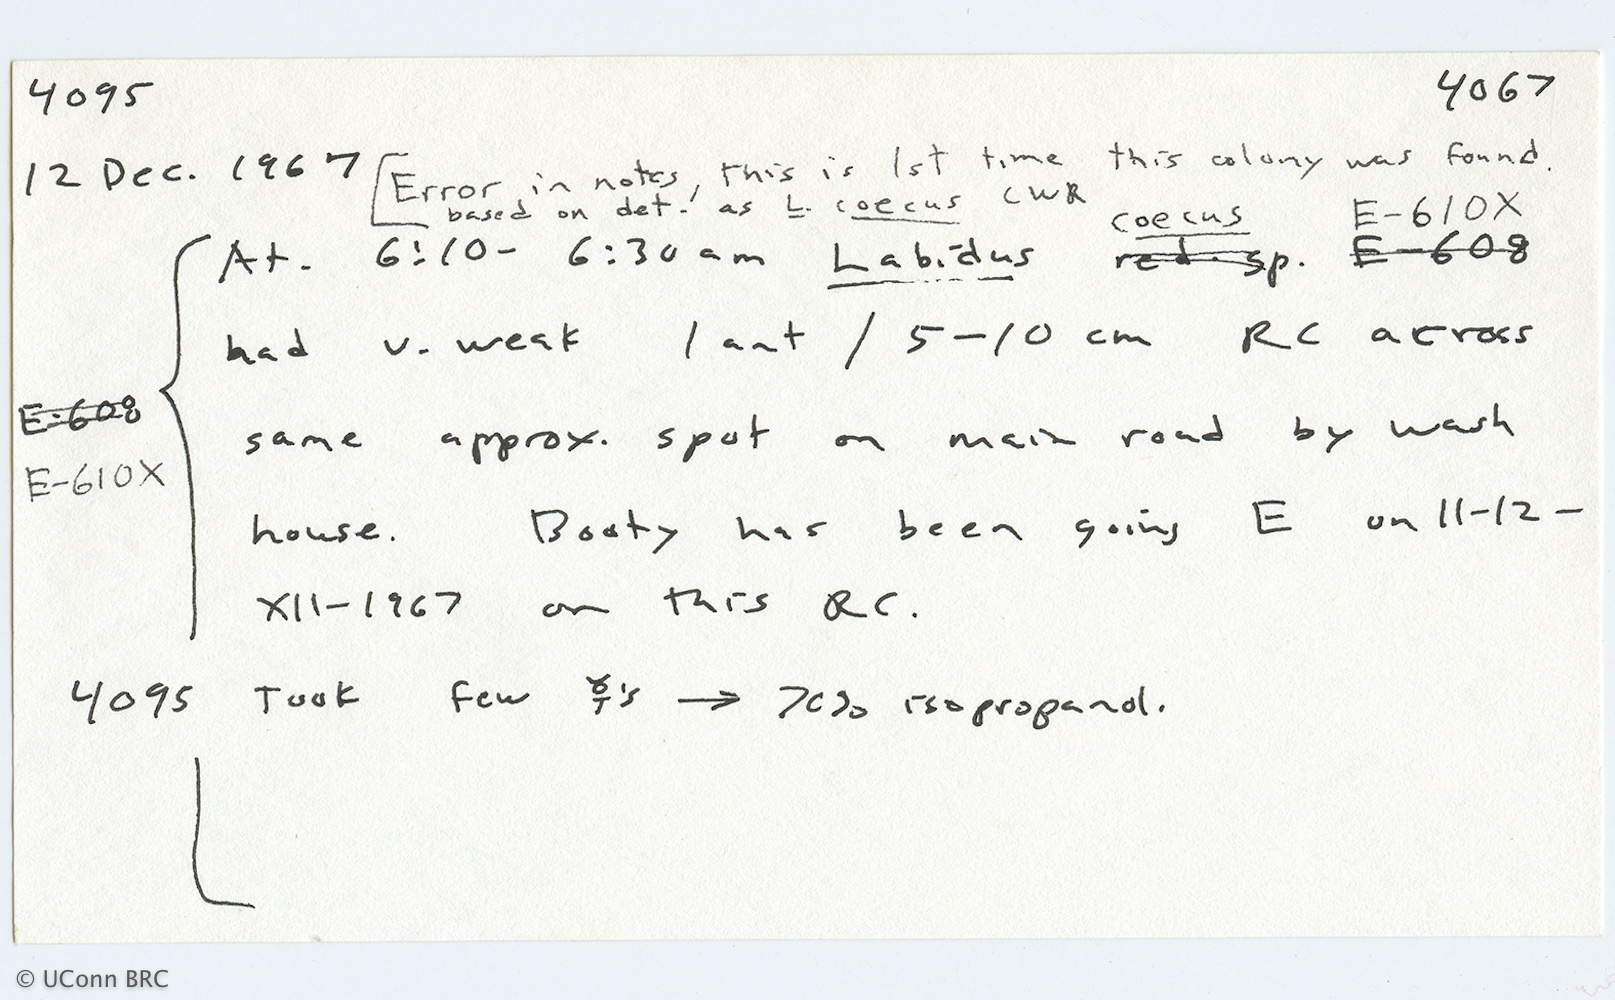 4095 4067
12 Dec. 1967 [Error in notes, this is 1st time this colony was found.
based on det. as L. coecus CWR
coecus E-610X
At. 6:10- 6:30 am Labidus red. sp. E-608
had v. weak 1 ant / 5-10 cm RC across
E-608
same approx. spot on main road by wash
E-610X
house. Booty has been going E on 11-12-
XII-1967 on this RC.
4095 Took few ☿'s → 70% isopropanol.
© UConn BRC